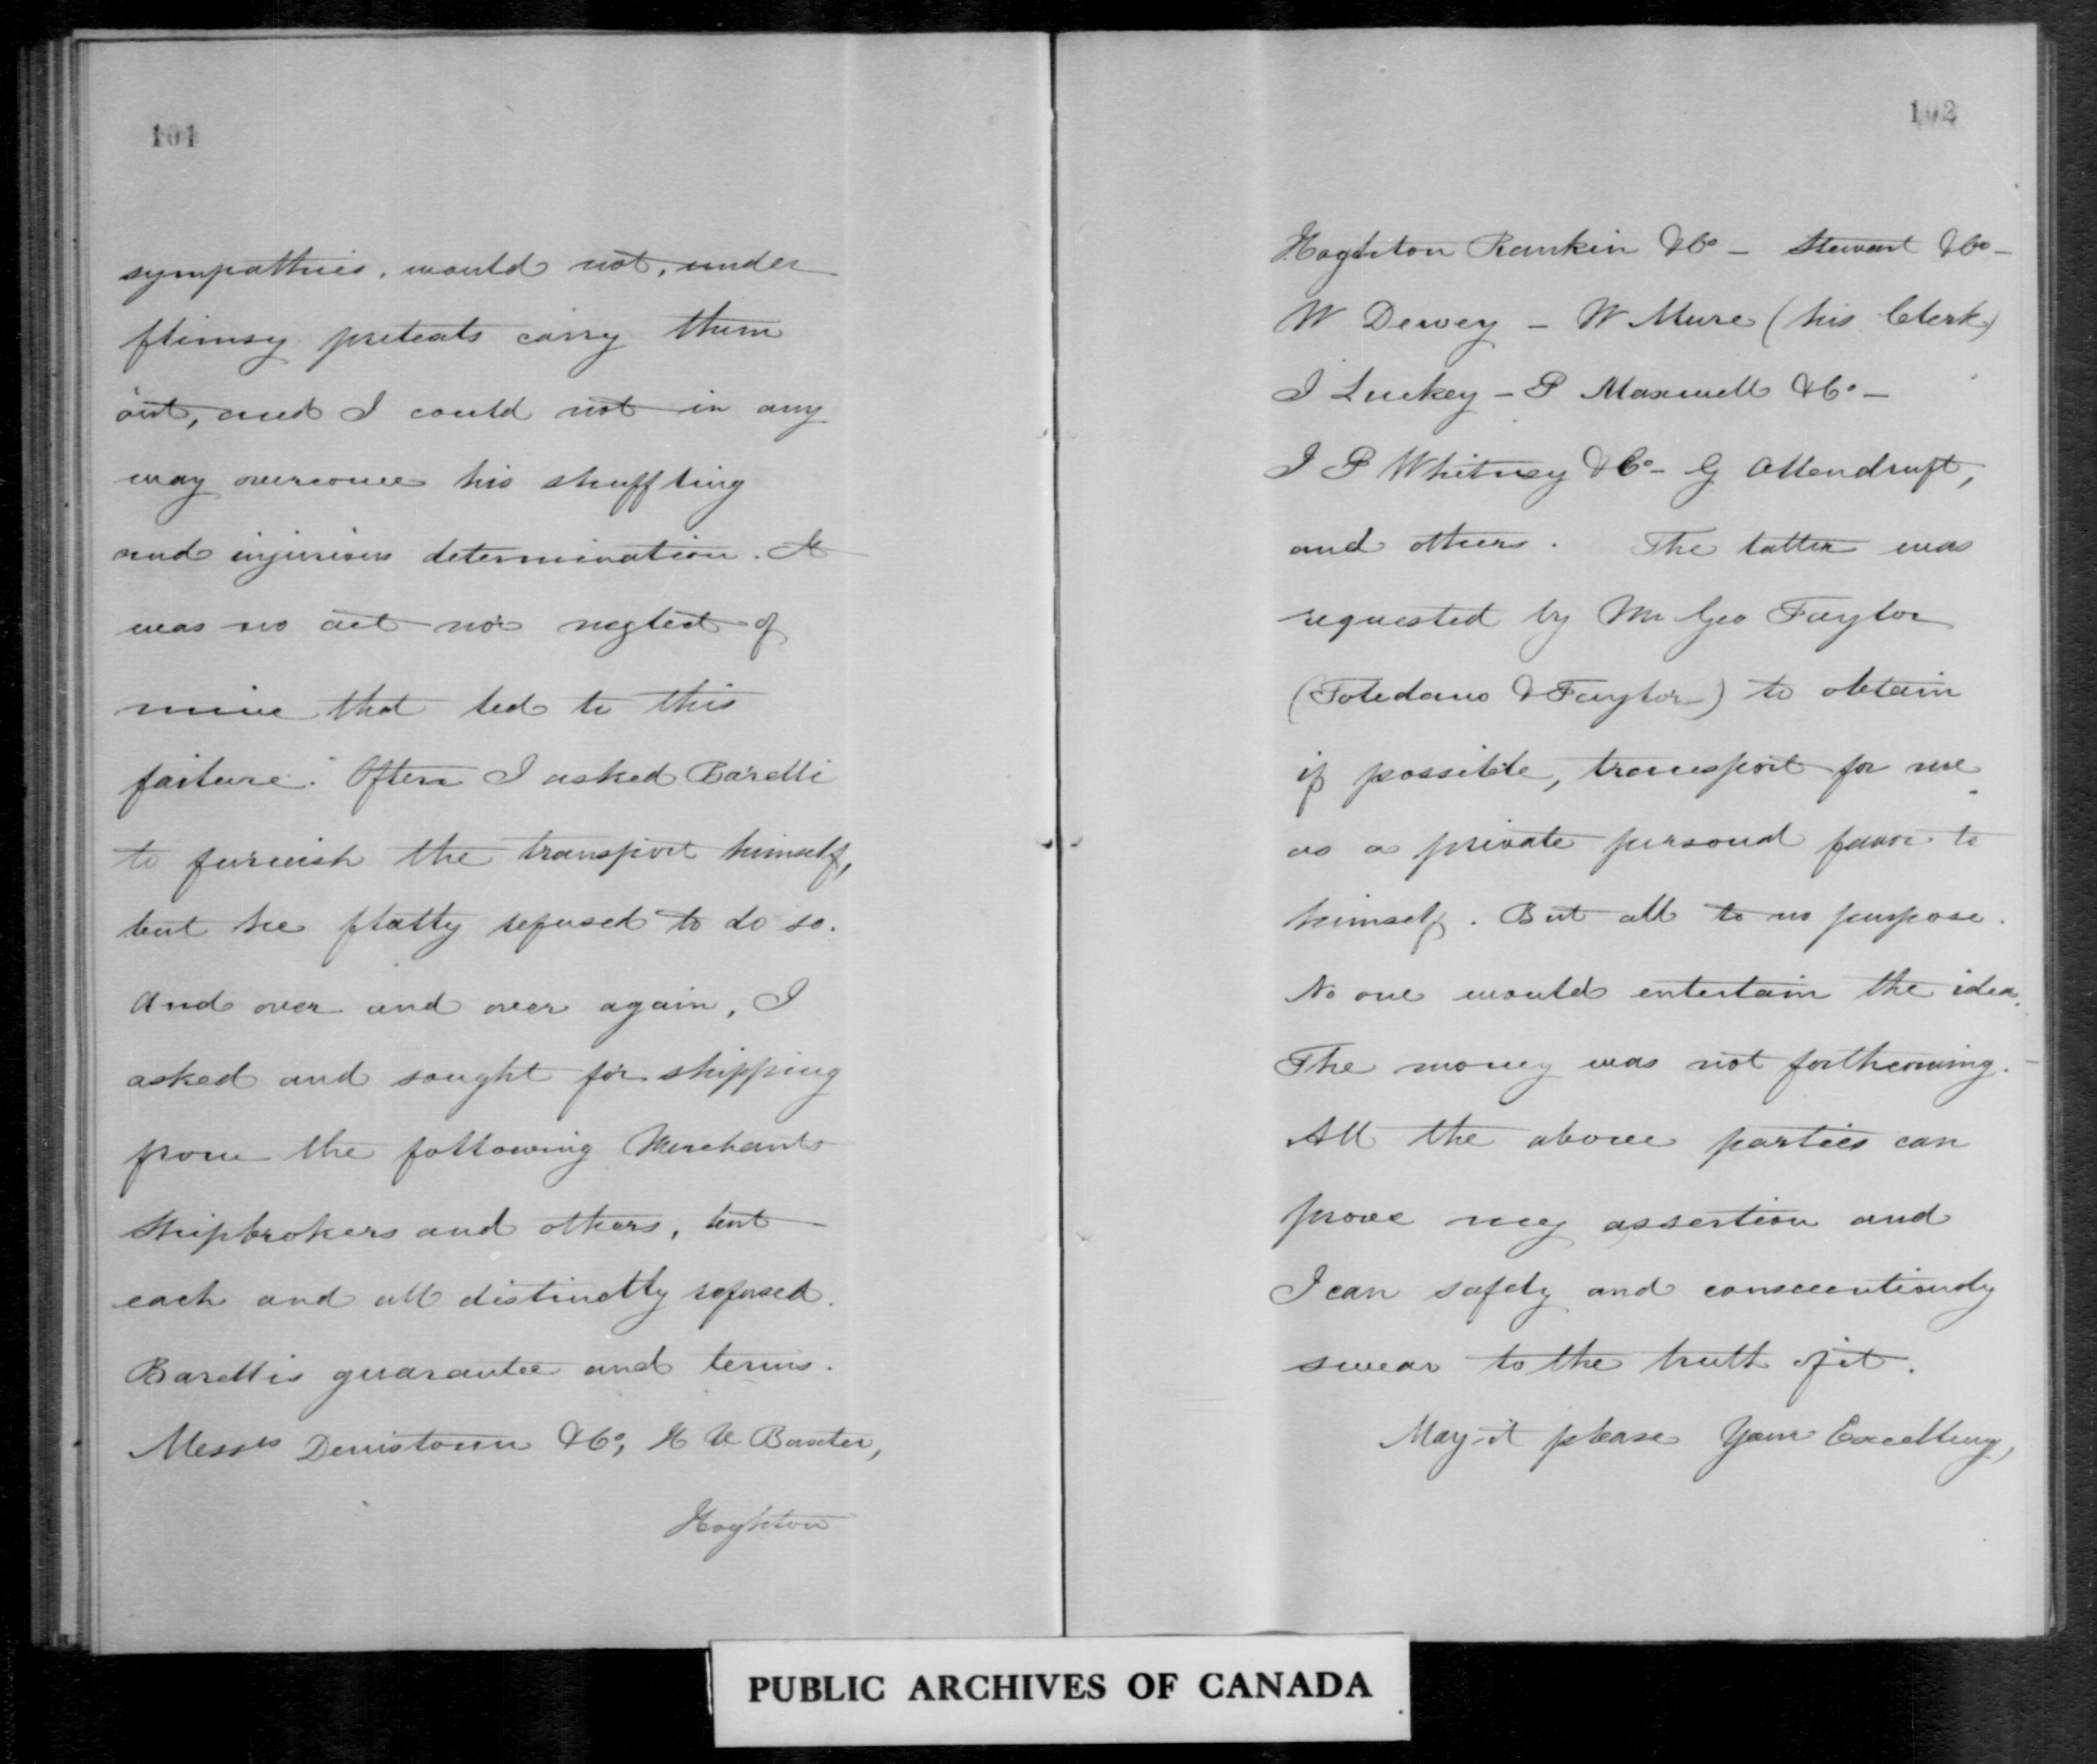 101
sympathies, would not, under
flimsy pretexts carry them
out, and I could not in any
way overcome his shuffling
and injurious determination. It
was no act nor neglect of
mine that led to this
failure. Often I asked Barelli
to furnish the transport himself,
but he flatly refused to do so.
And over and over again, I
asked and sought for shipping
from the following Merchants
Shipbrokers and others, but
each and all distinctly refused.
Barellis guarantee and terms.
Messrs Denistoun & Co, H Baxter,
Hoghton
102
Hoghton Rankin & Co – Stewart & Co –
W Dewey – W Mure (his Clerk)
J Luckey – P Maxwell & Co –
J P Whitney & Co – G
and others. The latter was
requested by Mr Geo Taylor
(Toledano & Taylor) to obtain
if possible, transport for me
as a private personal favor to
himself. But all to no purpose.
No one would entertain the idea.
The money was not forthcoming. –
All the above parties can
prove my assertion and
I can safely and conscientiously
swear to the truth of it.
May it please Your Excellency,
PUBLIC ARCHIVES OF CANADA